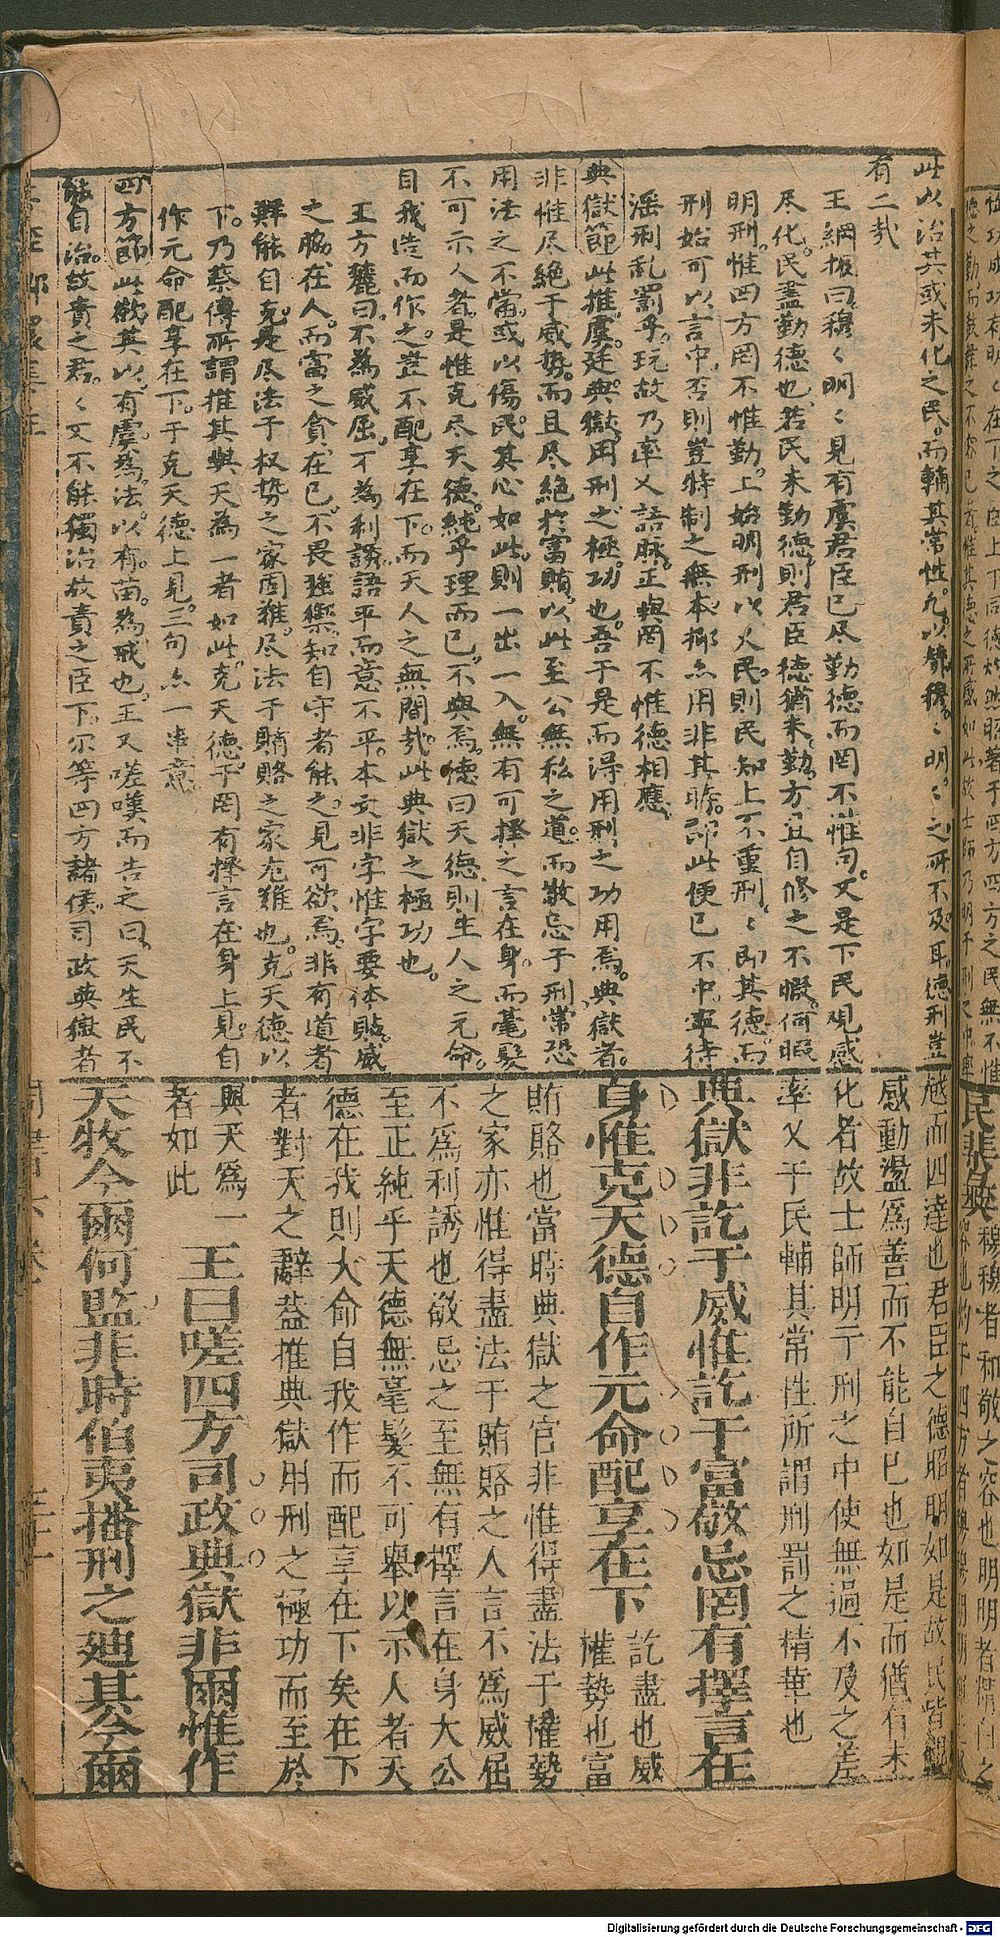 此以治其或未化之民。而輔其常性。凡以夔穆。〻明。〻之所不及耳。德刑豈
有二哉
王綱振曰。穆〻明〻見有虞君臣已尽勤德而罔不惟句。又是下民观感
尽化。民盡勤德也。若民未勤德。則君臣德猶未勤。方且自修之不暇。何暇
明刑。惟四方罔不惟勤。上始明刑以乂民。則民知上不重刑〻即其德。而
刑始可以言中。否則豈特制之無本。揶亦用非其時。即此便已不中。寧待
淫刑乱罰乎。玩故乃率乂語脉。正與罔不惟德相應。
典獄節此推虞廷典獄。用刑之極功也。吾于是而得用刑之功用焉。典獄者。
非惟尽絕于威势。而且尽絕於富賄。以此至公無私之道。而敬忌于刑。常恐
用法之不當。或以傷民。其心如此。則一出一入。無有可擇之言在身。而毫髮
不可示人者。是惟克尽天德。純乎理而已。不與焉。德曰天德。則生人之元命。
自我造而作之。豈不配享在下。而天人之無間哉。此典獄之極功也。
王方麓曰。不為威屈。不為利誘。語平而意不平。本文非字惟字要体貼。威
之脇。在人。而富之貪。在已。不畏強禦。知自守者能之。見可欲焉。非有道者
鮮能自克。是尽法于权势之家固难。尽法于賄賂之家尤难也。克天德以
下。乃蔡傳所謂推其與天為一者如此。克天德。于罔有擇言在身上見。自
作元命配享在下。于克天德上見。三句亦一串意。
四方節此欲其以有虞為法。以有苗為戒也。王又嗟嘆而告之曰。天生民不
能自治。故責之君。〻又不能獨治。故責之臣下。尔等四方諸侯。司政典獄者
越而四達也君臣之德昭明如是故民皆觀
感動盪爲善而不能自已也如是而猶有未
化者故士師明于刑之中使無過不及之差
率乂于民輔其常性所謂刑罰之精華也
典獄非訖于威惟訖于富敬忌罔有擇言在
身惟克天德自作元命配享在下 訖盡也威
權勢也富
賄賂也當時典獄之官非惟得盡法于權勢
之家亦惟得盡法于賄賂之人言不爲威屈
不爲利誘也敬忌之至無有擇言在身大公
至正純乎天德無毫髮不可舉以示人者天
德在我則大命自我作而配享在下矣在下
者對天之辭葢推典獄用刑之極功而至於
與天爲一
者如此 王曰嗟四方司政典獄非爾惟作
天牧今爾何監非時伯夷播刑之迪其今爾
Digitalisierung gefördert durch die Deutsche Forschungsgemeinschaft - DFG